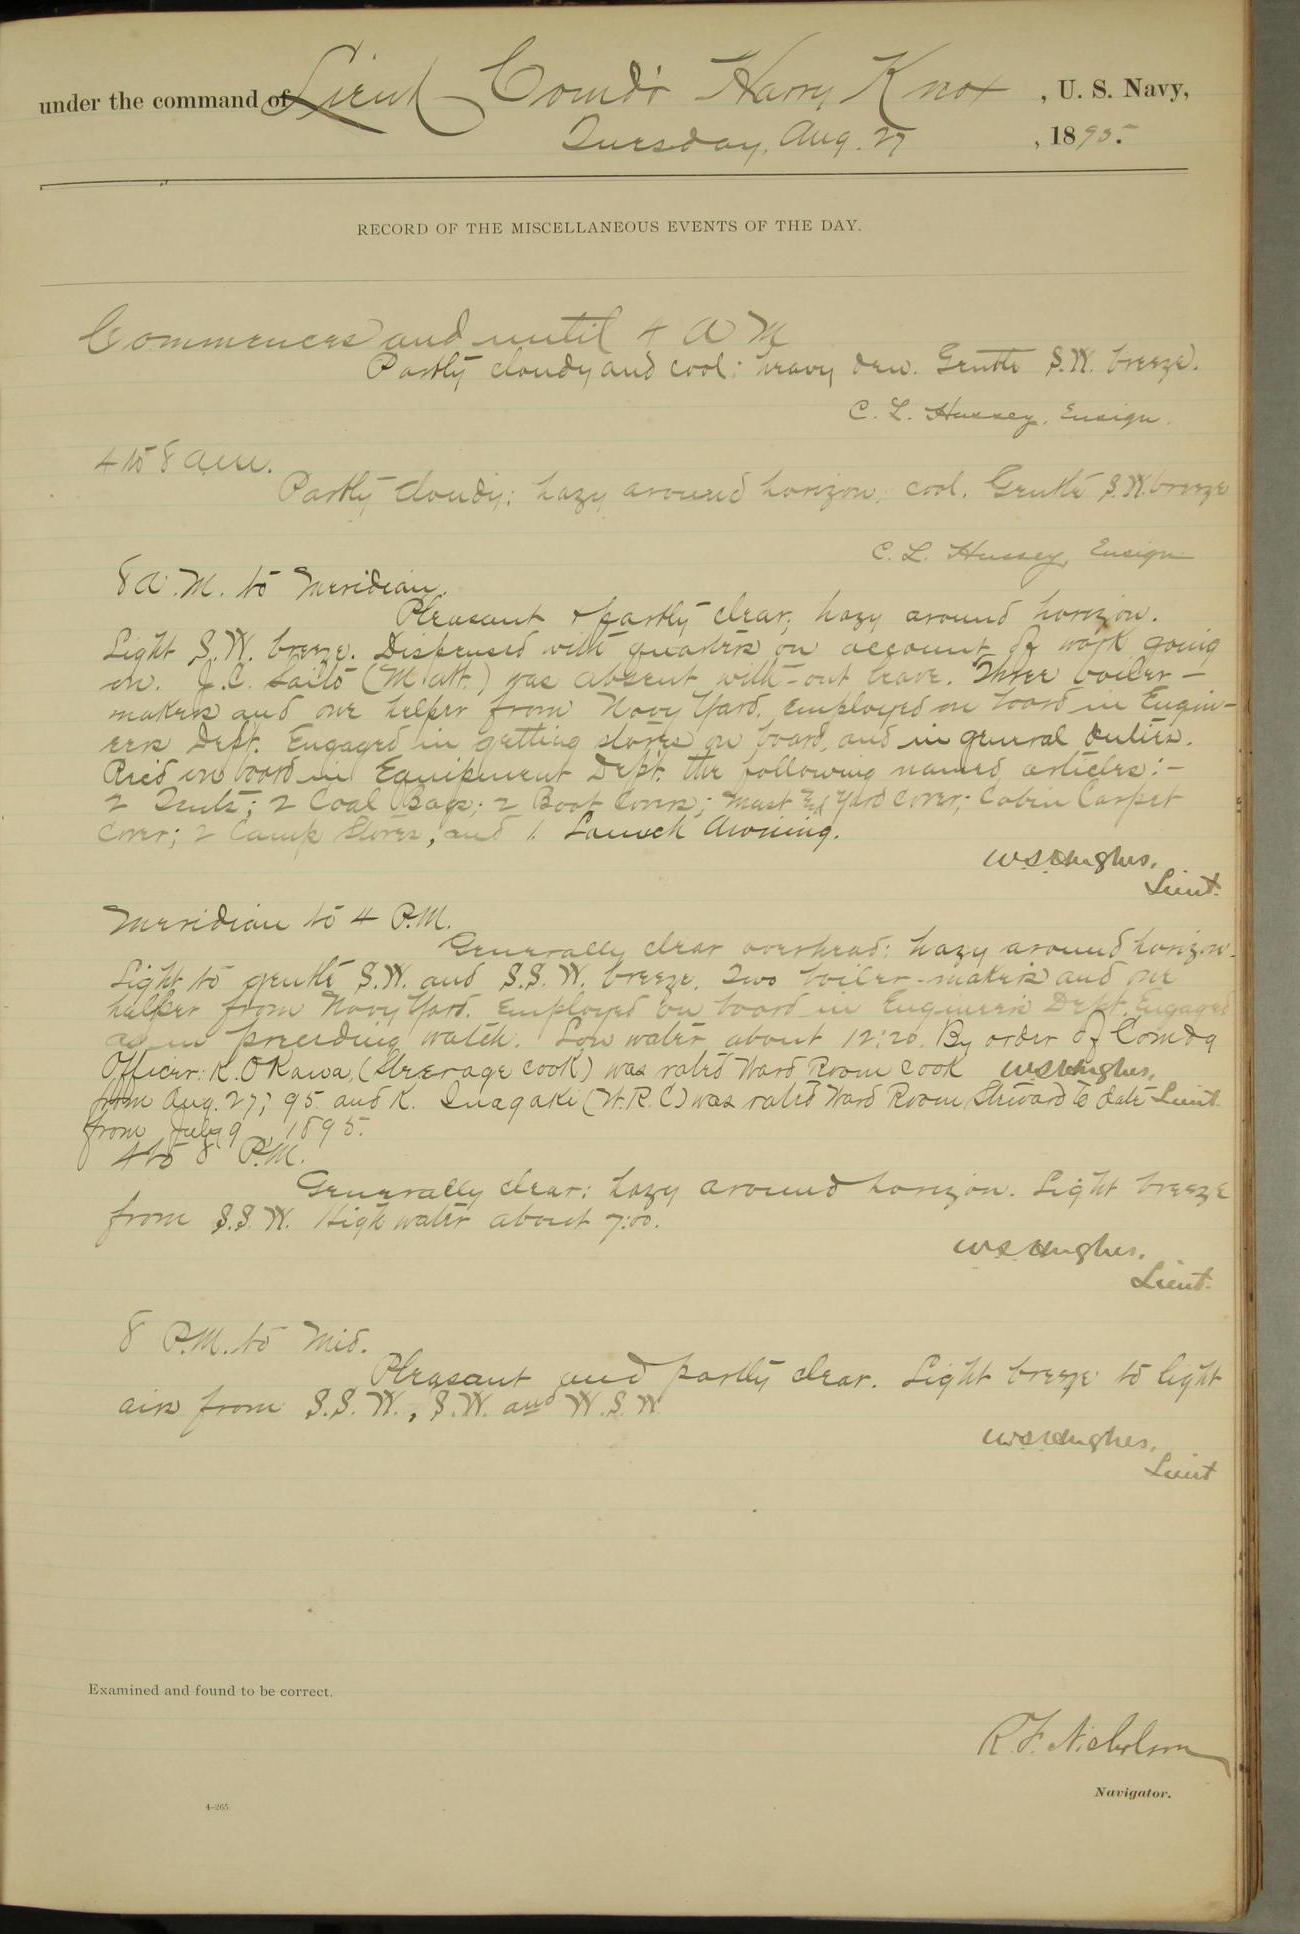 under the command of Lieut Comd'r Harry Knox, U. S. Navy,
Tuesday, Aug. 27, 1895.
RECORD OF THE MISCELLANEOUS EVENTS OF THE DAY.
Commences and until 4 A M
Partly cloudy and cool; heavy dew. Gentle S.W. breeze.
C. L. Hussey, Ensign.
4 to 8 a.m.
Partly cloudy; hazy around horizon; cool. Gentle S.W. breeze
C. L. Hussey, Ensign
8 A.M. to Meridian.
Pleasant & partly clear; hazy around horizon.
Light S.W. breeze. Dispensed with quarters on account of work going
on. J.C. Saito (M. att.) was absent with-out leave. Three boiler-
makers and one helper from Navy Yard, employed on board in Engin-
eers Dept. Engaged in getting stores on board, and in general duties.
Rec'd on board in Equipment Dept. the following named articles:-
2 Tents; 2 Coal Bags; 2 Boat Covers; Mast Yard cover; Cabin Carpet
Cover; 2 Camp Stores; and 1. Launch Awning.
W S Hughes,
Lieut.
Meridian to 4 P.M.
Generally clear overhead; hazy around horizon.
Light to gentle S.W. and S.S.W. breeze. Two boiler-makers and one
helper from Navy Yard. employed on board in Engineers Dept. Engaged
as in preceding watch. Low water about 12:20. By order of Comdg
Officer: K. OKawa, (Steerage cook) was rated Ward Room cook W S Hughes,
from Aug. 27, 95 and K. Inagaki (W.R.C) was rated Ward Room Steward to date Lieut.
from July 9, 1895.
4 to 8 P.M.
Generally clear; hazy around horizon. Light breeze
from S.S.W. High water about 7:00.
W S Hughes,
Lieut.
8 P.M. to Mid.
Pleasant and partly clear. Light breeze to light
airs from S.S.W., S.W. and W.S.W.
W S Hughes,
Lieut
Examined and found to be correct.
R. F. Nicholson
Navigator.
4-265